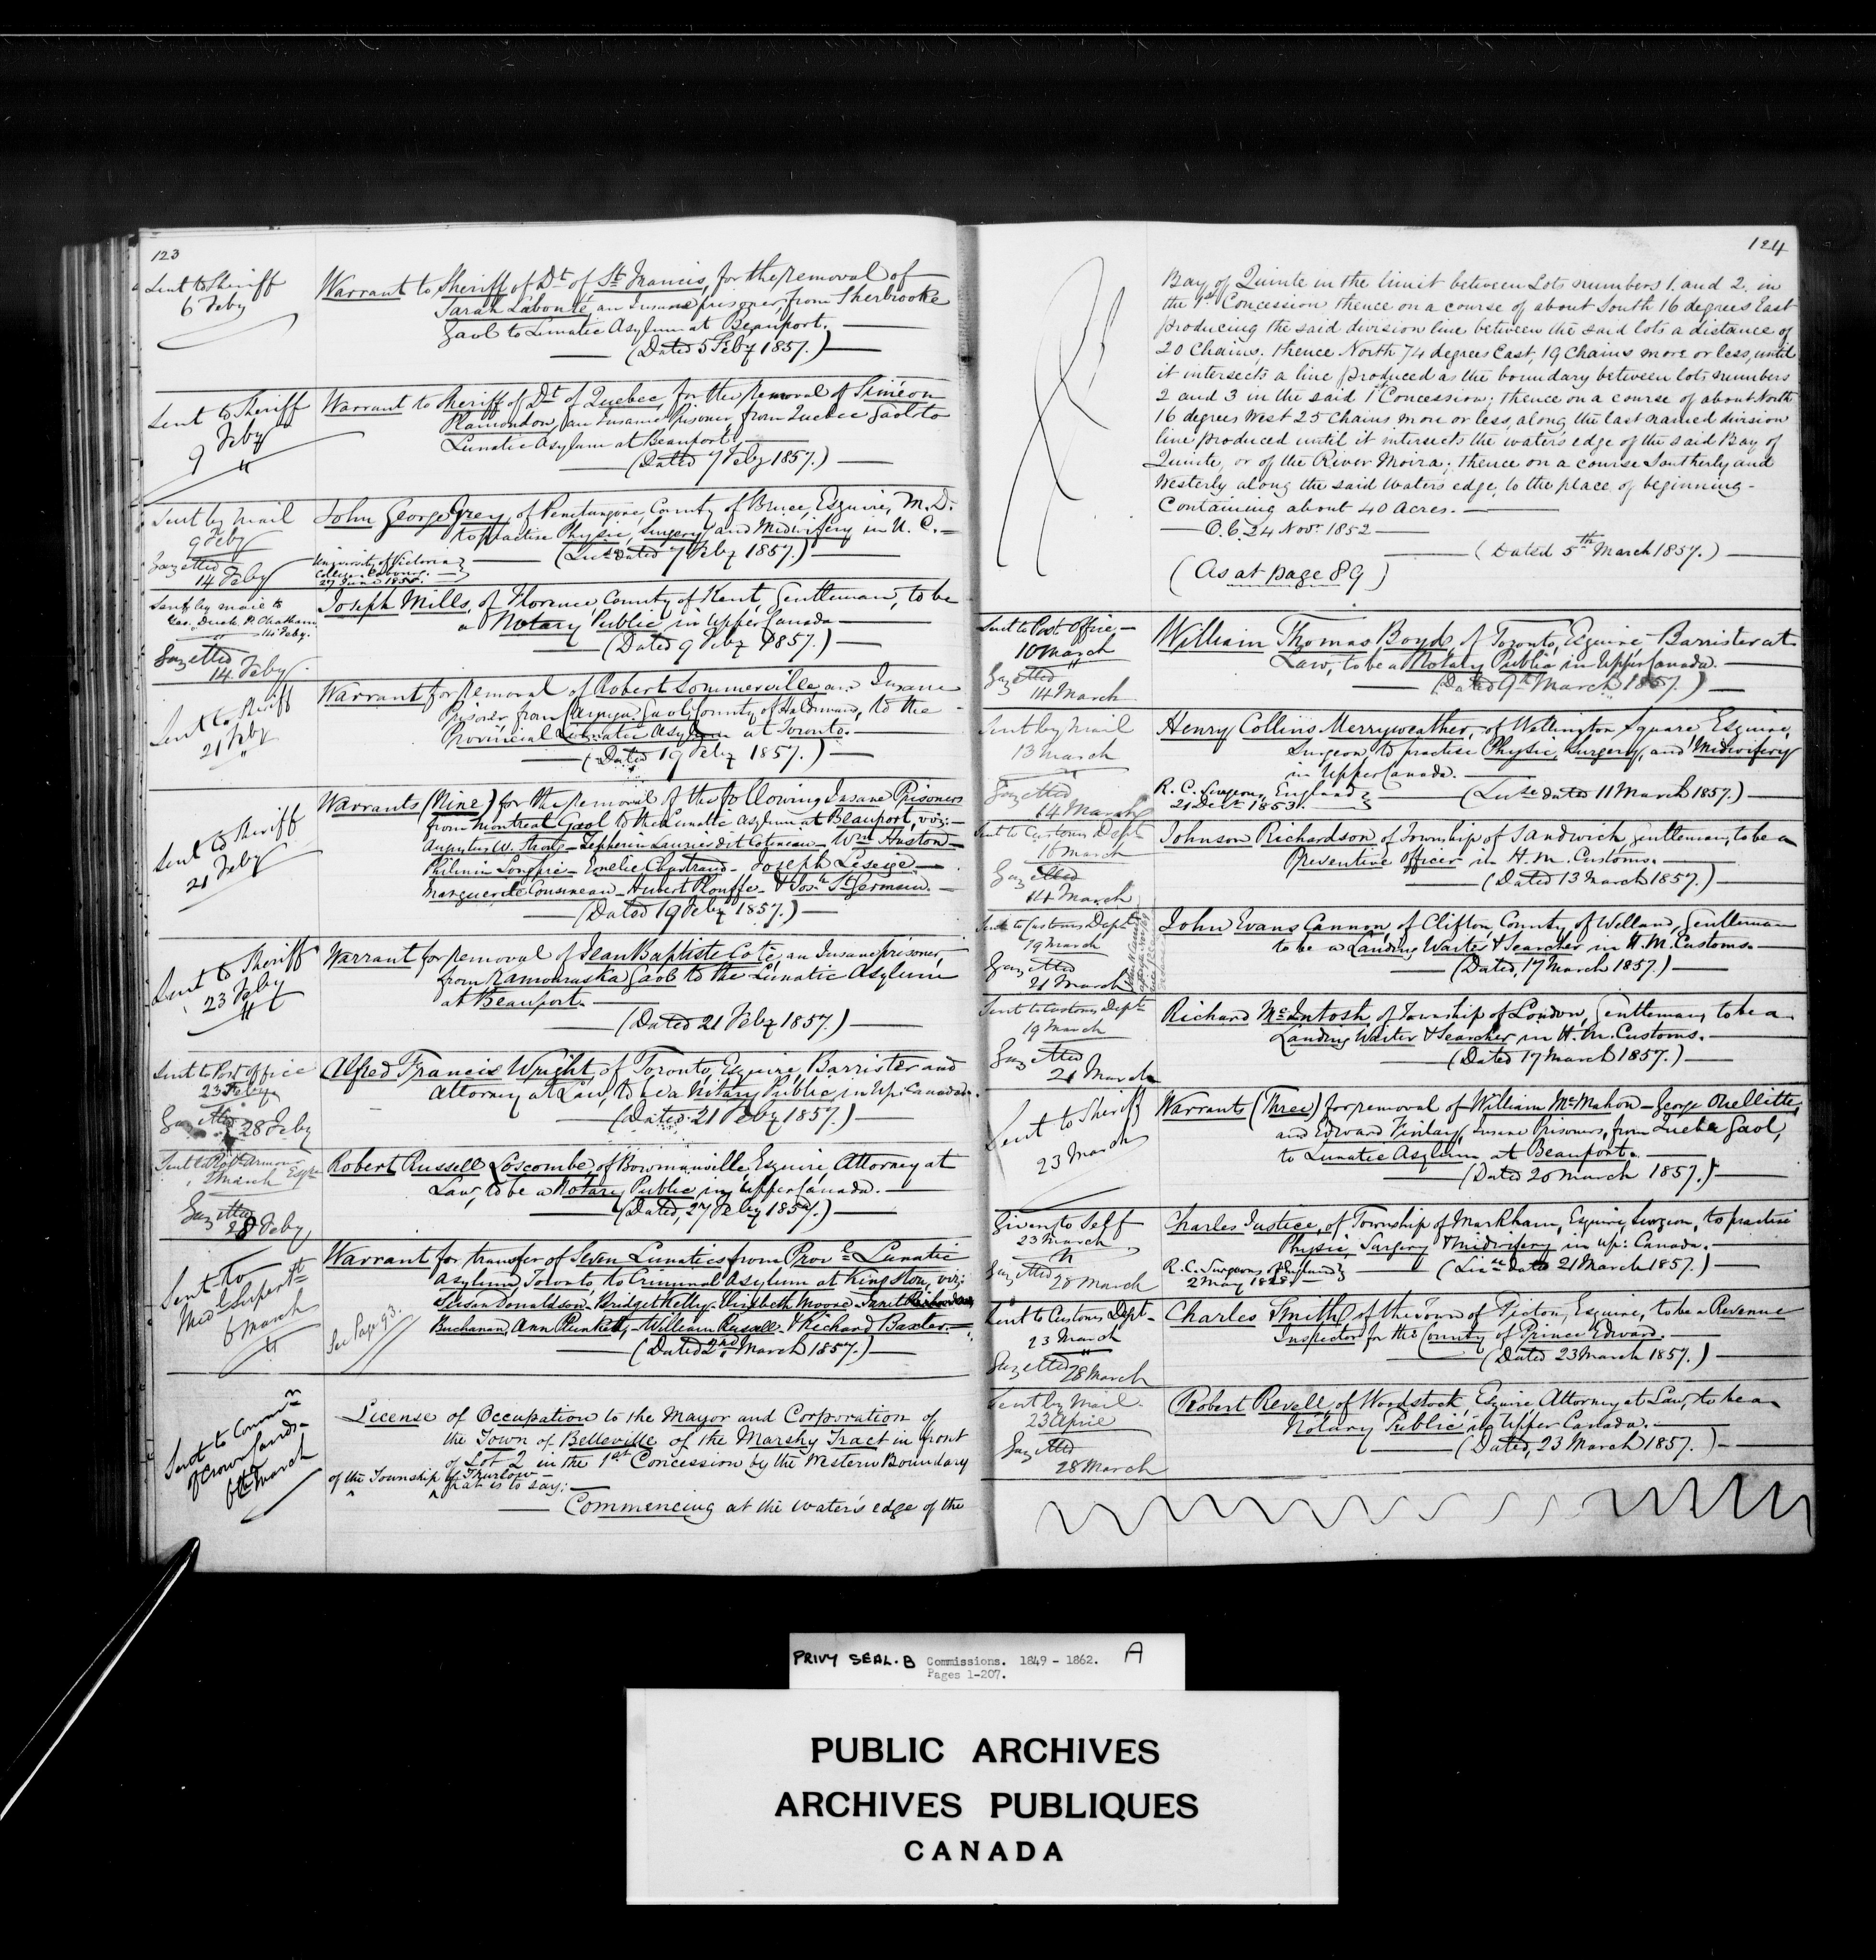 123
Sent to Sheriff
6 Feby
Warrant to Sheriff of Dt of St Francis, for the removal of
Sarah Labonté, an Insane prisoner, from Sherbrooke
Gaol to Lunatic Asylum at Beauport.
(Dated 5 Feby 1857.)
Sent to Sheriff
9 Feby
Warrant to Sheriff of Dt of Quebec, for the removal of Siméon
Plamondon, an Insane Prisoner, from Quebec Gaol to
Lunatic Asylum at Beauport.
(Dated 7 Feby 1857.)
Sent by Mail
9 Feby
Gazetted
14 Feby
John George Grey, of Penetangore, County of Bruce, Esquire, M.D.
to practise Physic, Surgery, and Midwifery in U.C.
University of Victoria
College Cobourg.
(Lice dated 7 Feby 1857.)
Sent by mail to
Chatham
14 Feby.
Gazetted
14 Feby
Joseph Mills, of Florence, County of Kent, Gentleman, to be
a Notary Public in Upper Canada
(Dated 9 Feby 1857.)
Sent to Sheriff
21 Feby
Warrant for removal of Robert Sommerville, an Insane
Prisoner from Cayuga Gaol, County of Haldimand, to the
Provincial Lunatic Asylum at Toronto.
(Dated 19 Feby 1857.)
Sent to Sheriff
21 Feby
Warrants (Nine) for the removal of the following Insane Prisoners
from Montreal Gaol to the Lunatic Asylum at Beauport, viz:
Augustus W. Strong - Zepherin Laurier dit Cotineau - Wm Huston
Philimin Longpré - Emelie Chartrand - Joseph Lesiege
Marguerite Cousineau - Hubert Plouffe - & Josh St Germain.
(Dated 19 Feby 1857.)
Sent to Sheriff
23 Feby
Warrant for removal of Jean Baptiste Coté, an Insane prisoner,
from Kamouraska Gaol to the Lunatic Asylum
at Beauport.
(Dated 21 Feby 1857.)
Sent to Post Office
23 Feby
Gazetted 28 Feby
Alfred Francis Wright, of Toronto, Esquire, Barrister and
Attorney at Law, to be a Notary Public in Up: Canada.
(Dated 21 Feby 1857.)
Sent to Robt Armour
2 March Esqre
Gazetted
28 Feby
Robert Russell Loscombe, of Bowmanville, Esquire, Attorney at
Law, to be a Notary Public in Upper Canada.
(Dated, 27 Feby 1857.)
Sent to
Medl Superdt
6 March
See Page 93.
Warrant for transfer of Seven Lunatics from Provl Lunatic
Asylum, Toronto, to Criminal Asylum at Kingston, viz:
Susan Donaldson - Bridget Kelly - Elizabeth Moore - Jannet
Buchanan, Ann Plunkett, - William Russell - & Richard Baxter.
(Dated 2nd March 1857.)
Sent to Commr
of Crown Lands
6th March
License of Occupation to the Mayor and Corporation of
the Town of Belleville of the Marshy Tract in front
of Lot 2 in the 1st Concession by the Western Boundary
of the Township of Thurlow
that is to say:
Commencing at the water's edge of the
124
Bay of Quinte in the limit between Lots numbers 1 and 2. in
the 1st Concession thence on a course of about South 16 degrees East
producing the said division line between the said lots a distance of
20 Chains. thence North 74 degrees East, 19 Chains more or less, until
it intersects a line produced as the boundary between lots numbers
2 and 3 in the said 1st Concession; thence on a course of about North
16 degrees West 25 Chains more or less, along the last named division
line produced until it intersects the waters edge of the said Bay of
Quinte, or of the River Moira; thence on a course Southerly and
Westerly along the said waters edge, to the place of beginning -
Containing about 40 Acres.
O.C. 24 Novr 1852
(Dated 5th March 1857.)
(As at page 89)
Sent to Post Office
10 March
Gazetted
14 March
William Thomas Boyd, of Toronto, Esquire, Barrister at
Law, to be a Notary Public in Upper Canada.
(Dated 9th March 1857.)
Sent by Mail
13 March
Gazetted
14 March
Henry Collins Merryweather, of Wellington Square, Esquire,
Surgeon to practise Physic, Surgery, and Midwifery
in Upper Canada.
R. C. Surgeons, England
21 Decr 1853.
(Lice dated 11 March 1857.)
Sent to Customs Dept
16 March
Gazetted
14 March
Johnson Richardson of Township of Sandwich, Gentleman, to be a
Preventive Officer in H. M. Customs.
(Dated 13 March 1857.)
Sent to Customs Dept
19 March
Gazetted
21 March
John Evans Cannon, of Clifton, County of Welland, Gentleman
to be a Landing Waiter & Searcher in H. M. Customs.
(Dated, 17 March 1857.)
Sent to Customs Dept
19 March
Gazetted
21 March
Richard McIntosh of Township of London, Gentleman, to be a
Landing Waiter & Searcher in H. M. Customs.
(Dated 17 March 1857.)
Sent to Sheriff
23 March
Warrants (Three) for removal of William McMahon - George Ouellitte,
and Edward Finlay, Insane Prisoners, from Quebec Gaol,
to Lunatic Asylum at Beauport.
(Dated 20 March 1857.)
Given to Self
23 March
Gazetted
28 March
Charles Justice, of Township of Markham, Esquire, Surgeon, to practise
Physic, Surgery & Midwifery in Up: Canada.
R. C. Surgeons of England
2 May 1828.
(Lice dated 21 March 1857.)
Sent to Customs Dept
23 March
Gazetted
28 March
Charles Smith, of the Town of Picton, Esquire, to be a Revenue
Inspector for the County of Prince Edward.
(Dated 23 March 1857.)
Sent by Mail.
23 April
Gazetted
28 March
Robert Revell, of Woodstock, Esquire Attorney at Law, to be a
Notary Public in Upper Canada.
(Dated, 23 March 1857.)
PRIVY SEAL. B Commissions. 1849 - 1862. A
Pages 1-207.
PUBLIC ARCHIVES
ARCHIVES PUBLIQUES
CANADA